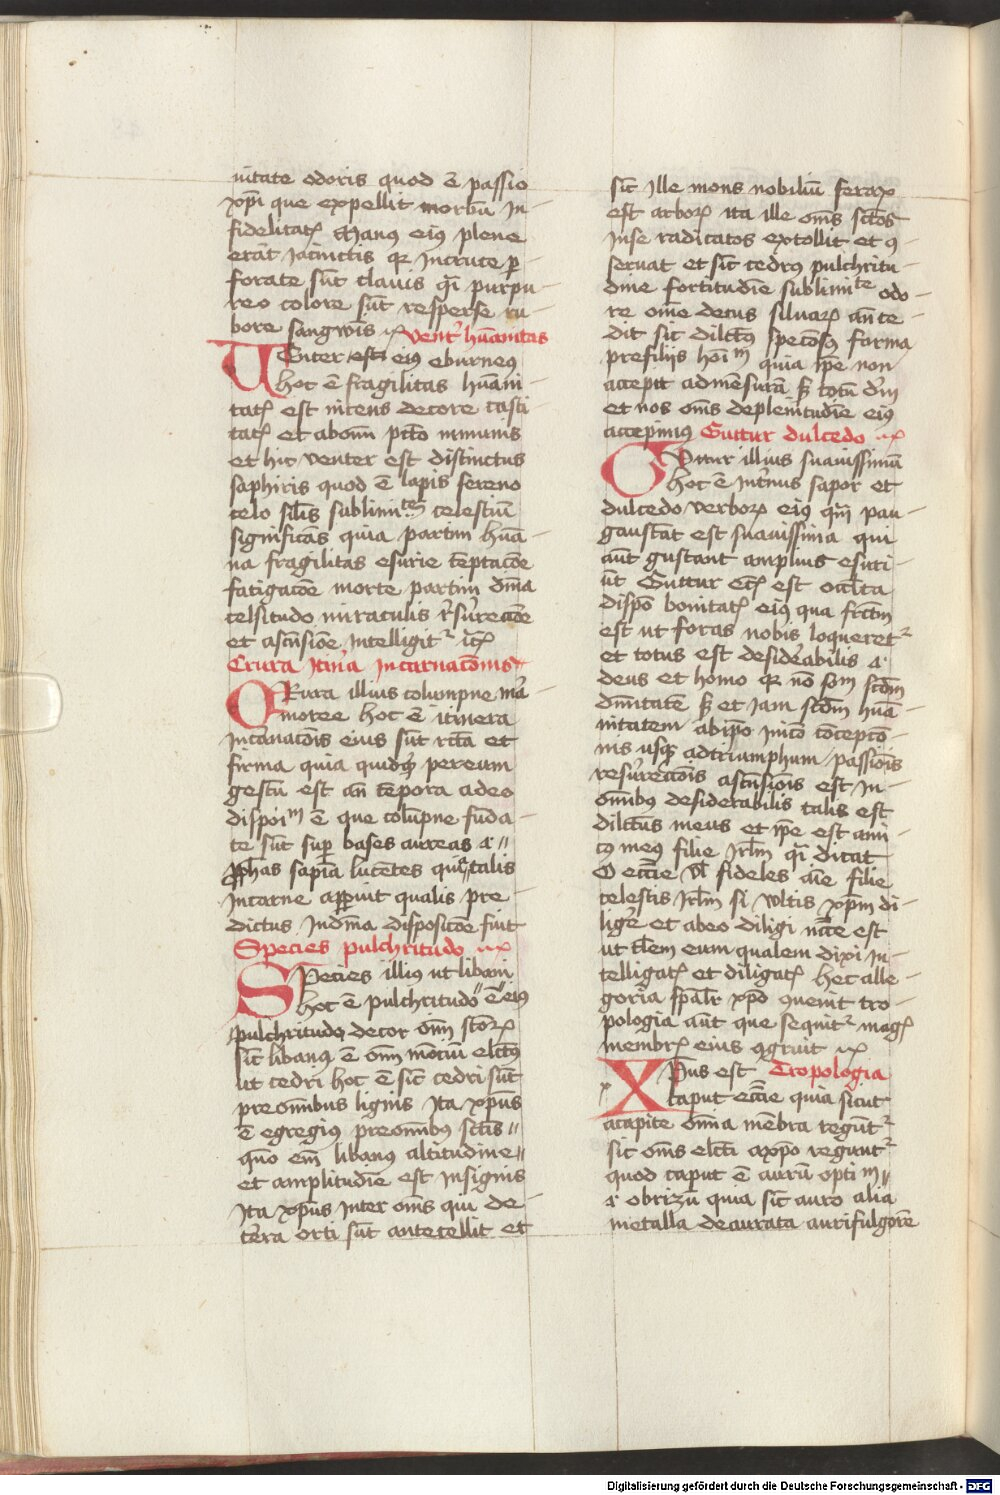 uitate odoris quod ē passio
xp̄i que expellit morbū in-
fidelitatꝭ Manꝰ eiꝰ plene
erāt Jacinctis qꝛ in cruce ꝑ-
forate sūt clauis qͣi purpu-
reo colore sūt resperse ru-
bore sangwīs
Ventꝭ hūanitas
UEnter eiꝰ eburneꝰ
hoc ē fragilitas hūani-
tatꝭ est nitens decore casti-
tatꝭ et ab om̄i pctō inmunis
et hic venter est distinctus
saphiris quod ē lapis sereno
celo sil̄is sublimitem celestiū
significās quia partim hūa-
na fragilitas esurie tēptacōe
fatigacōe morte partim diūa
celsitudo miraculis r̄sūrectōe
et ascn̄sione intelligitᷣ
Crura itin̄a incarnacōnis
CRura illius columpne mar-
moree hoc ē itinera
incarnacōis eius sūt rc̄ta et
firma quia quidqͥd per eum
gestū est an̄ tēpora adeo
disposim ē que colūpne fūda-
te sūt suꝑ bases aureas .i.
ꝓphēas sapiā lucētes quia talis
in carne apparuit qualis pre
dictus in diūa disposicōe fuit
Species pulchritudo
SPecies illiꝰ ut libani
hoc ē pulchritudo ē eiꝰ
pulchritudo decor om̄i sctōꝝ
sic̄ libanꝰ ē om̄i mōciū elc̄tꝰ
ut cedri hoc ē sic̄ cedri sūt
pre om̄ibus lignis Ita xp̄us
ē egregiꝰ pre om̄ibꝰ sctis
quō em̄ libanꝰ altitudine
et amplitudīe est insignis
Ita xp̄us inter om̄s qui de
terra orti sūt antecellit et
sic̄ ille mons nobiliū ferax
est arboꝝ ita ille om̄s sctōs
in se radicatos extollit et ꝯ-
seruat et sic̄ cedrꝰ pulchritu-
dine fortitudīe sublimite odo-
re om̄e decus siluaꝝ ante-
dit sic dilc̄tꝰ speciosꝰ forma
pre filijs hoīm quia ip̄e non
accepit ad mēsurā sꝫ totū diū
et nos om̄s de plenitudīe eiꝰ
accepimꝰ Guttur dulcedo
GUttur illius suauissimū
hoc ē int̄nus sapor et
dulcedo verboꝝ eiꝰ qui pau-
gustāt est suauissima qui
aūt gustant amplius esuri-
ūt Guttur etꝭ est occl̄ta
dispō bonitatꝭ eiꝰ qua frc̄tm
est ut foras nobis loqueretᷣ
et totus est desid̄abilis .i.
deus et homo qꝛ nō som̄ scd̄m
diūitatē sꝫ et iam scd̄m hūa-
nitatem ab ip̄o inicō cōcepcō-
nis usqꝫ ad triumphum passiōis
resūrectōis ascn̄siōis est in
om̄ibꝰ desiderabilis talis est
dilc̄tus meus et ip̄e est ami-
cꝰ meꝰ filie Jrl̄m qͣi dicat
O ecc̄ie vl̄ fideles aīe filie
celestis Jrl̄m si vultis xp̄m di-
ligꝰe et ab eo diligi necc̄e est
ut tl̄em eum qualem dixi in-
telligatꝭ et diligatꝭ hec alle-
goria sp̄alr̄ xp̄o quenit tro-
pologia aūt que sequitᷣ magꝭ
membrꝭ eius ꝯgruit
XP̄us est Tropologia
caput ecc̄ie quia sicut
a capite om̄ia mēbra regūtᷣ
sic om̄s elc̄ti a xp̄o reguntᷣ
quod caput ē aurū optim
.i. obrizū quia sic̄ auro alia
metalla deaurata auri fulgōre
Digitalisierung gefördert durch die Deutsche Forschungsgemeinschaft - DFG